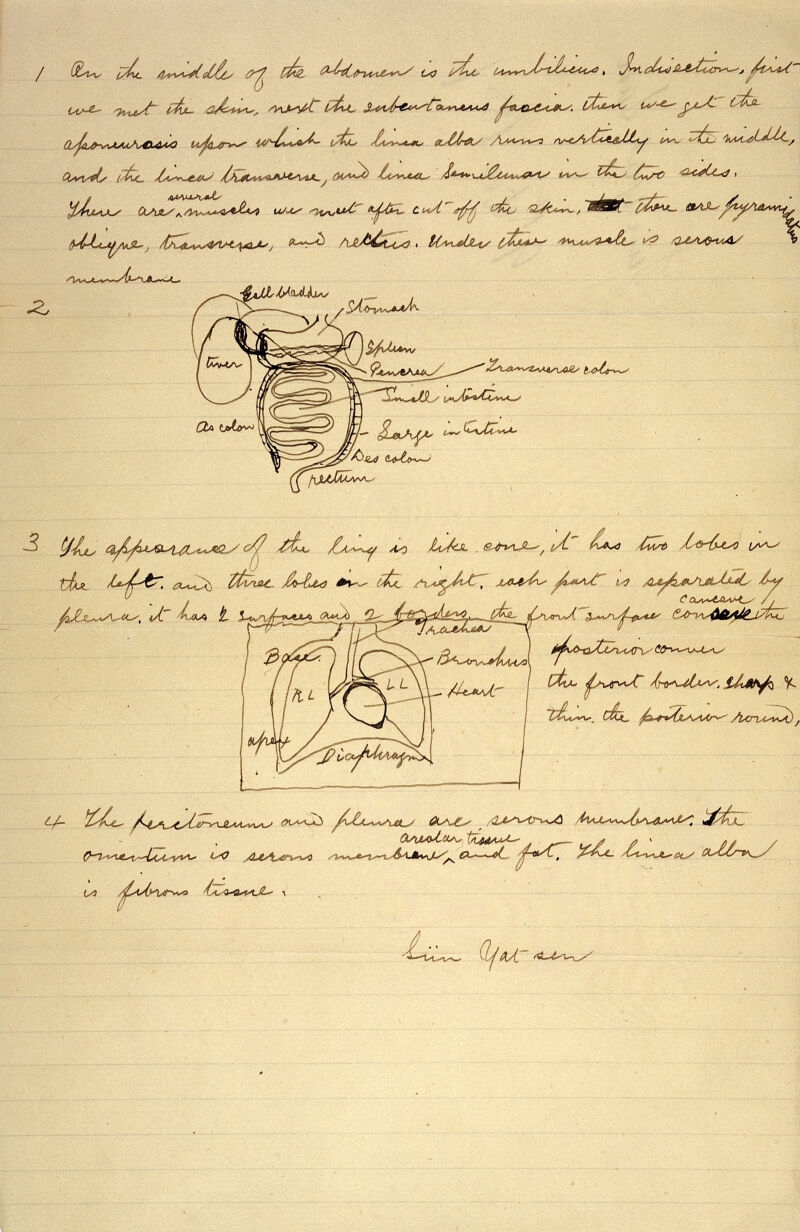 1 On the middle of the abdomen is the umbilicus. Indisection, first
we met the skin, next the subcutaneus fascia. then we get the
aponeurosis upon which the linea alba runs vertically in the middle,
and the linea transverse, and linea Semilunar in the two sides.
There are several muscles we meet after cut off the skin, there are pyramidatus
oblique, transverse, and rectus. Under these muscle is serous
membrane
2
Gall bladder
Stomach
liver
Spleen
Pencrea
Transverse colon
Small intestine
As colon
Large intestine
Des colon
rectum
3 The appearance of the ling is like cone, it has two lobes in
the left. and three lobes in the right. each part is separated by
pleura. it has 2 surfaces and 2 borders. the front surface concave the
Trachea
Base.
Bronchus
posterior convex
RL
LL
Heart
the front border. sharp &
thin. the posterior round,
apex
Diaphragm
4 The peritoneum and pleura are serous membrane. The
omentum is serous membrane, areolar tissue and fat. The linea alba
is fibrous tissue.
Sün Yat sen